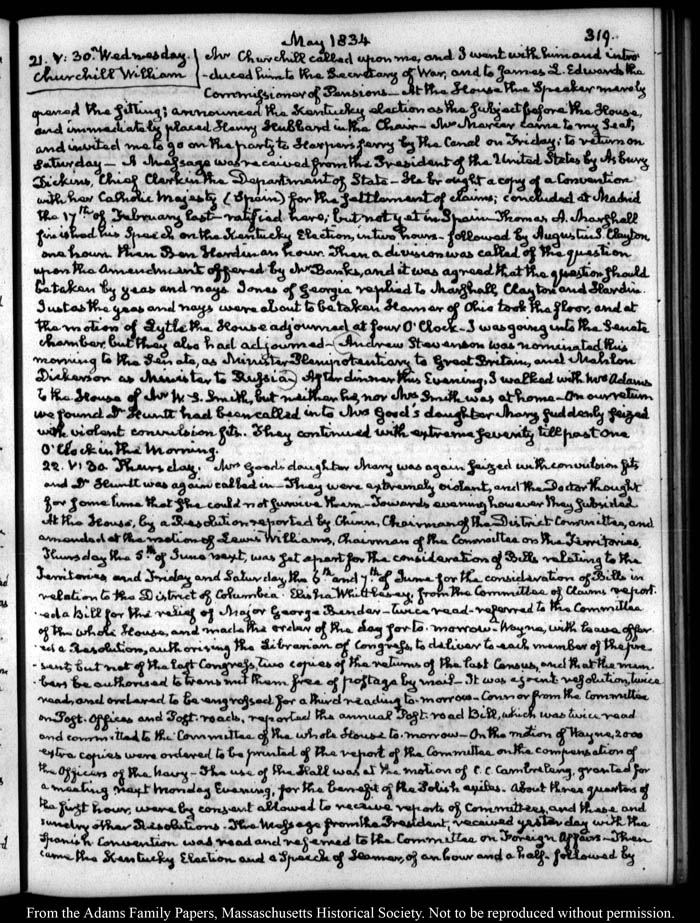 May 1834
319.
21. V: 30. Wednesday.
Churchill William
Mr Churchill called upon me, and I went with him and intro
-duced him to the Secretary of War, and to James L. Edwards the
Commissioner of Pensions — At the House the Speaker merely
opened the sitting; announced the Kentucky election as the subject before the House,
and immediately placed Henry Hubbard in the Chair — Mr Mercer came to my Seat,
and invited me to go on the party to Harpers ferry by the Canal on Friday; to return on
Saturday — A Message was received from the President of the United States by Asbury
Dickins, Chief Clerk in the Department of State — He brought a copy of a Convention
with her Catholic Majesty (Spain) for the settlement of claims; concluded at Madrid
the 17th of February last — ratified here, but not yet in Spain — Thomas A. Marshall
finished his Speech on the Kentucky Election, in two hours — followed by Augustin S. Clayton
one hour. then Ben Hardin an hour. Then a division was called of the question
upon the Amendment offered by Mr Banks, and it was agreed that the question should
be taken by yeas and nays. Jones of Georgia replied to Marshall, Clayton and Hardin.
Just as the yeas and nays were about to be taken Hamer of Ohio took the floor, and at
the motion of Lytle the House adjourned at four O'Clock — I was going into the Senate
chamber, but they also had adjourned — (Andrew Stevenson was nominated this
morning to the Senate, as Minister Plenipotentiary to Great Britain, and Mahlon
Dickerson as Minister to Russia.) After dinner this Evening, I walked with Mrs Adams
to the House of Mr W. S. Smith, but neither he, nor Mrs Smith was at home — On our return
we found Dr Huntt had been called in to Mrs Good's daughter Mary suddenly seized
with violent convulsion fits. They continued with extreme severity till past one
O'Clock in the Morning.
22. V: 30. Thursday. Mrs Good's daughter Mary was again seized with convulsion fits
and Dr Huntt was again called in — They were extremely violent, and the Doctor thought
for some time that she could not survive them — Towards evening however they subsided
At the House, by a Resolution reported by Chinn, Chairman of the District Committee, and
amended at the motion of Lewis Williams, Chairman of the Committee on the Territories,
Thursday the 5th of June next, was set apart for the consideration of Bills relating to the
Territories, and Friday and Saturday, the 6th and 7th of June for the consideration of Bills in
relation to the District of Columbia. Elisha Whittlesey, from the Committee of Claims report
-ed a Bill for the relief of Major George Bender — twice read — referred to the Committee
of the whole House, and made the order of the day for to-morrow — Wayne, with leave offer
-ed a Resolution, authorising the Librarian of Congress, to deliver to each member of the pre
-sent but not of the last Congress, two copies of the returns of the last Census, and that the mem
-bers be authorised to transmit them free of postage by mail — It was a joint resolution, twice
read, and ordered to be engrossed for a third reading to-morrow — Connor from the Committee
on Post-Offices and Post-roads, reported the annual Post-road Bill, which was twice read
and committed to the Committee of the whole House to-morrow — On the motion of Wayne, 2000
extra copies were ordered to be printed of the report of the Committee on the compensation of
the Officers of the Navy — The use of the Hall was at the motion of C. C. Cambreleng, granted for
a meeting next Monday Evening, for the benefit of the Polish exiles. About three quarters of
the first hour, were by consent allowed to receive reports of Committees, and these and
sundry other Resolutions. The Message from the President, received yesterday with the
Spanish Convention was read and referred to the Committee on Foreign Affairs — Then
came the Kentucky Election and a Speech of Hamer, of an hour and a half — followed by
From the Adams Family Papers, Massachusetts Historical Society. Not to be reproduced without permission.